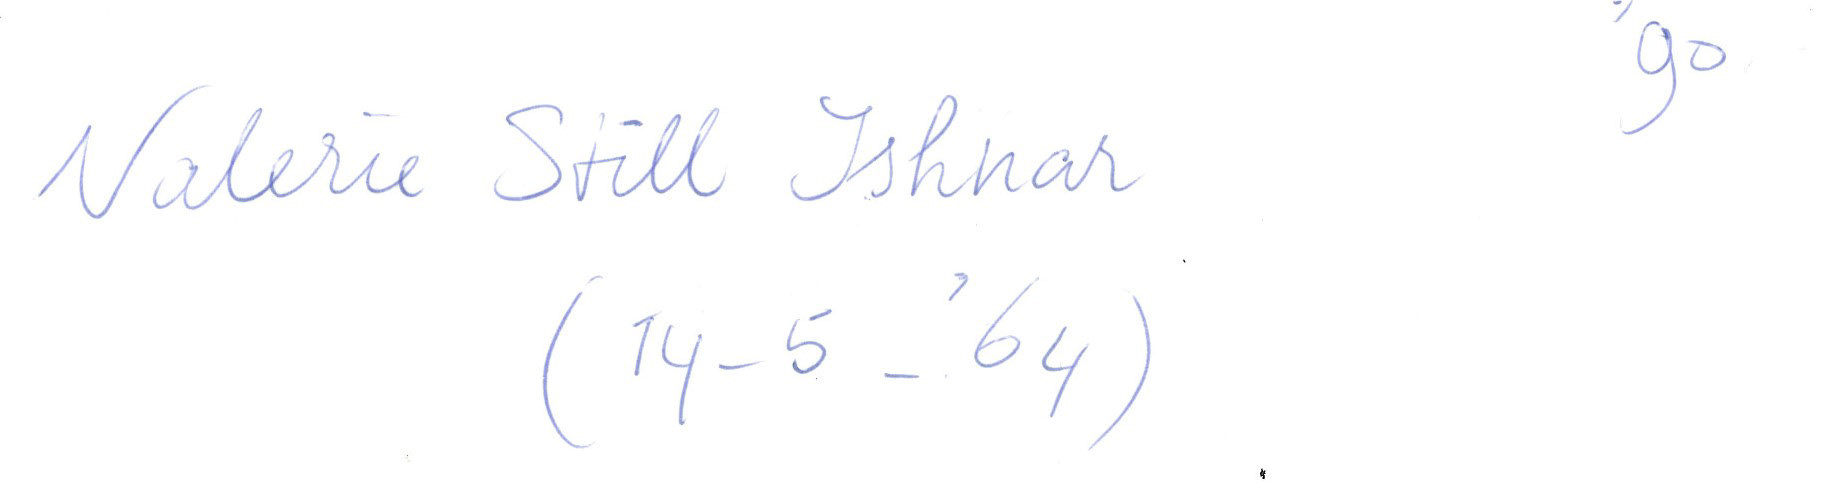 '90
Valerie Still Ishnar
(14-5-'64)